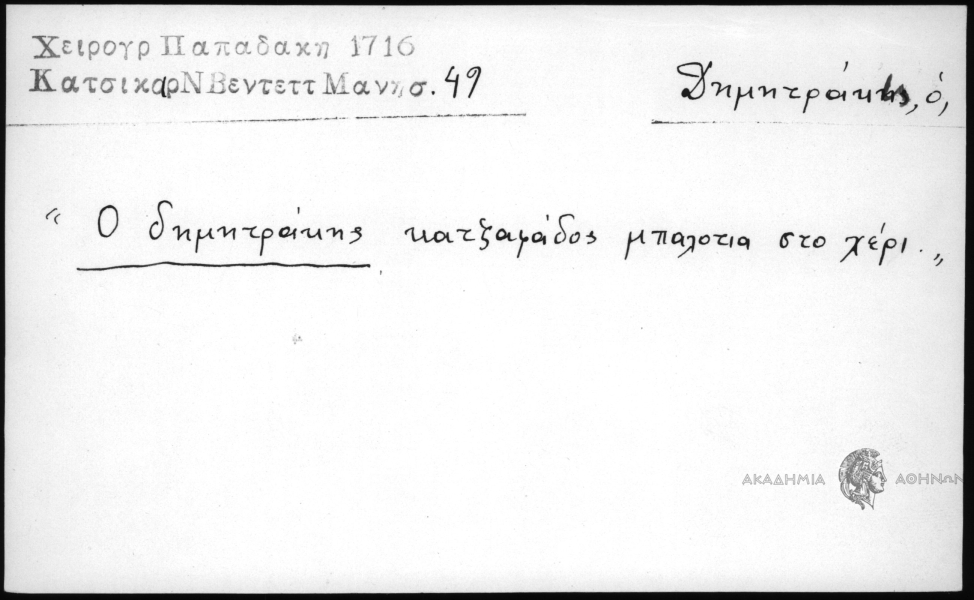 Χειρογρ Παπαδακη 1716
ΚατσικαρΝ Βεντεττ Μανησ. 49
Δημητράκης, ὁ,
“ Ο δημητράκης κατζαφάδος μπαλοτια στο χέρι. „
ΑΚΑΔΗΜΙΑ ΑΘΗΝΩΝ